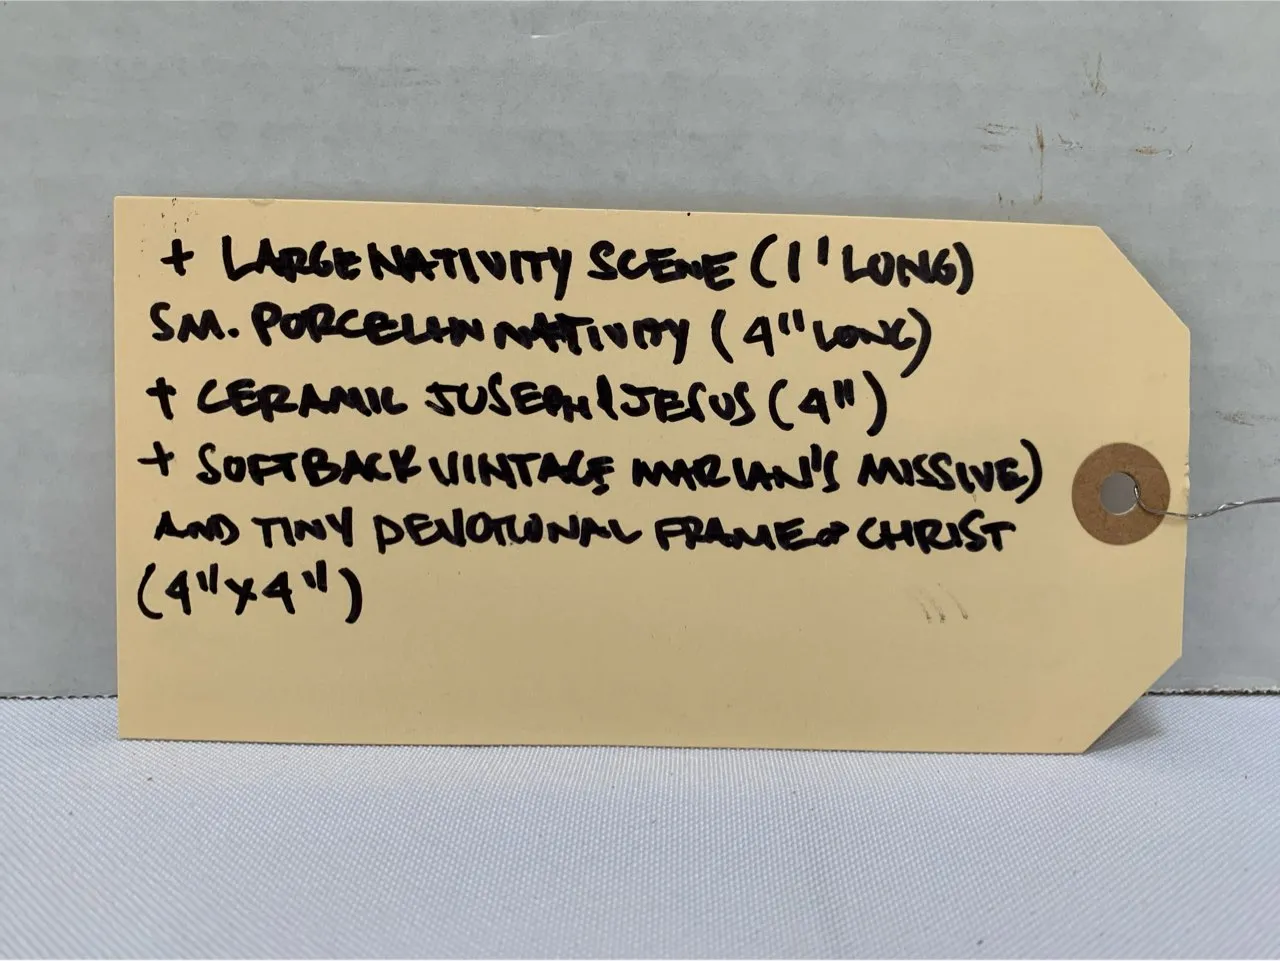 + LARGE NATIVITY SCENE (1' LONG)
SM. PORCELIN NATIVITY (4" LONG)
+ CERAMIC JOSEPH & JESUS (4")
+ SOFTBACK VINTAGE MARIAN'S MISSIVE)
AND TINY DEVOTIONAL FRAME OF CHRIST
(4"X4")